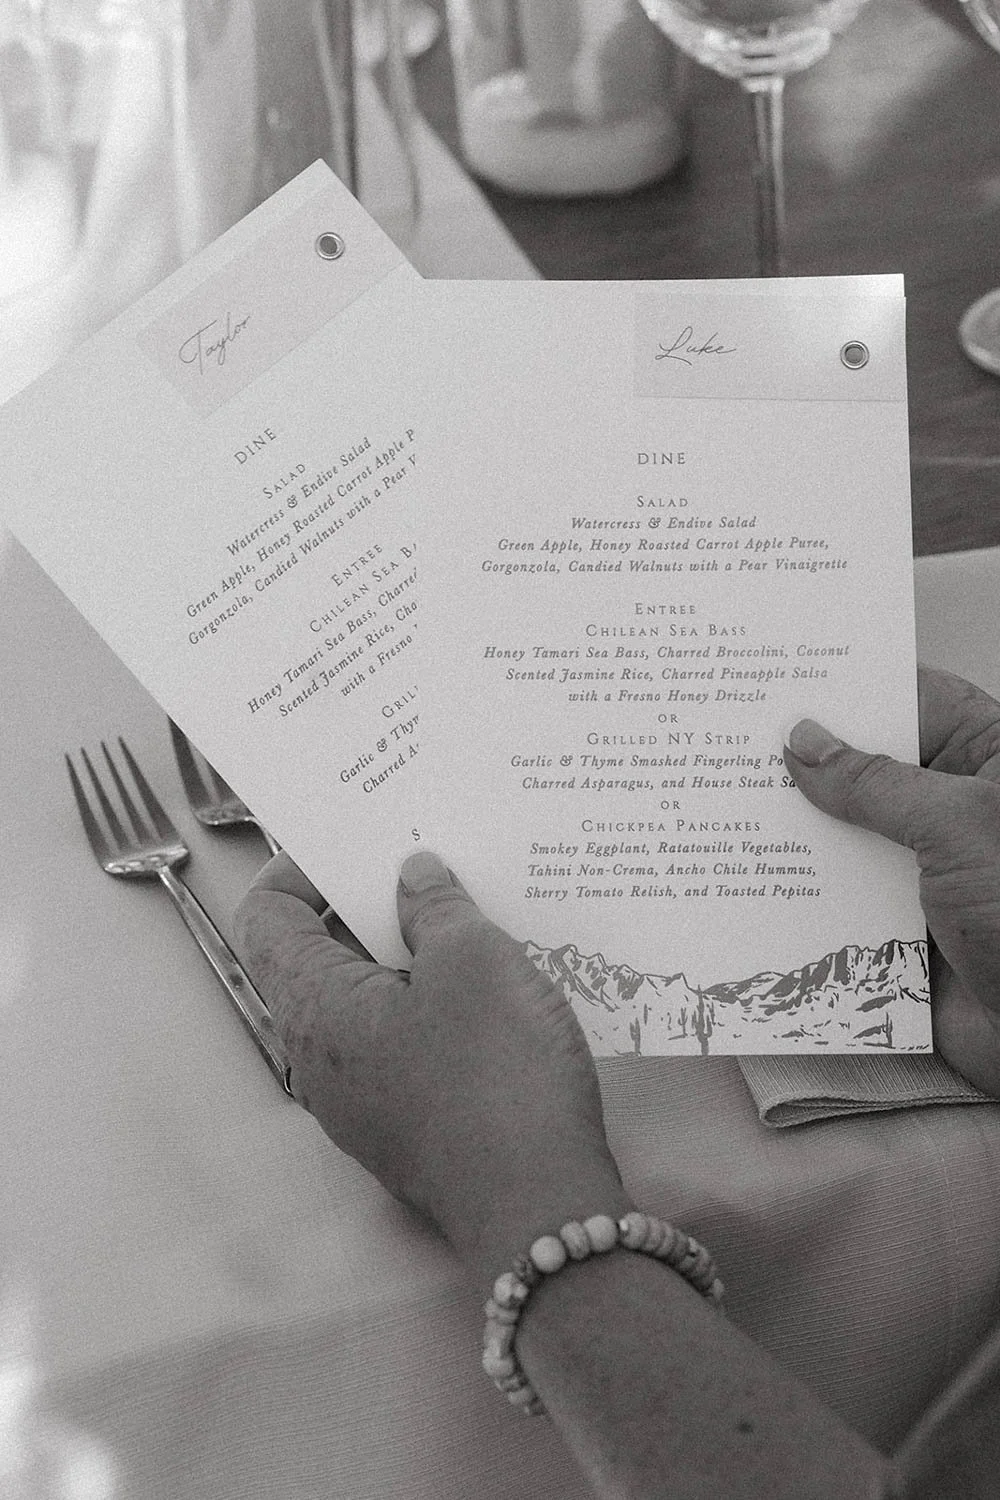 Taylor
DINE
SALAD
Watercress & Endive Salad
Green Apple, Honey Roasted Carrot Apple
Gorgonzola, Candied Walnuts with a Pear
ENTREE
CHILEAN SEA
Honey Tamari Sea Bass, Charred
Scented Jasmine Rice,
with a Fresno
Garlic &
Charred
Luke
DINE
SALAD
Watercress & Endive Salad
Green Apple, Honey Roasted Carrot Apple Puree,
Gorgonzola, Candied Walnuts with a Pear Vinaigrette
ENTREE
CHILEAN SEA BASS
Honey Tamari Sea Bass, Charred Broccolini, Coconut
Scented Jasmine Rice, Charred Pineapple Salsa
with a Fresno Honey Drizzle
OR
GRILLED NY STRIP
Garlic & Thyme Smashed Fingerling
Charred Asparagus, and House Steak
OR
CHICKPEA PANCAKES
Smokey Eggplant, Ratatouille Vegetables,
Tahini Non-Crema, Ancho Chile Hummus,
Sherry Tomato Relish, and Toasted Pepitas